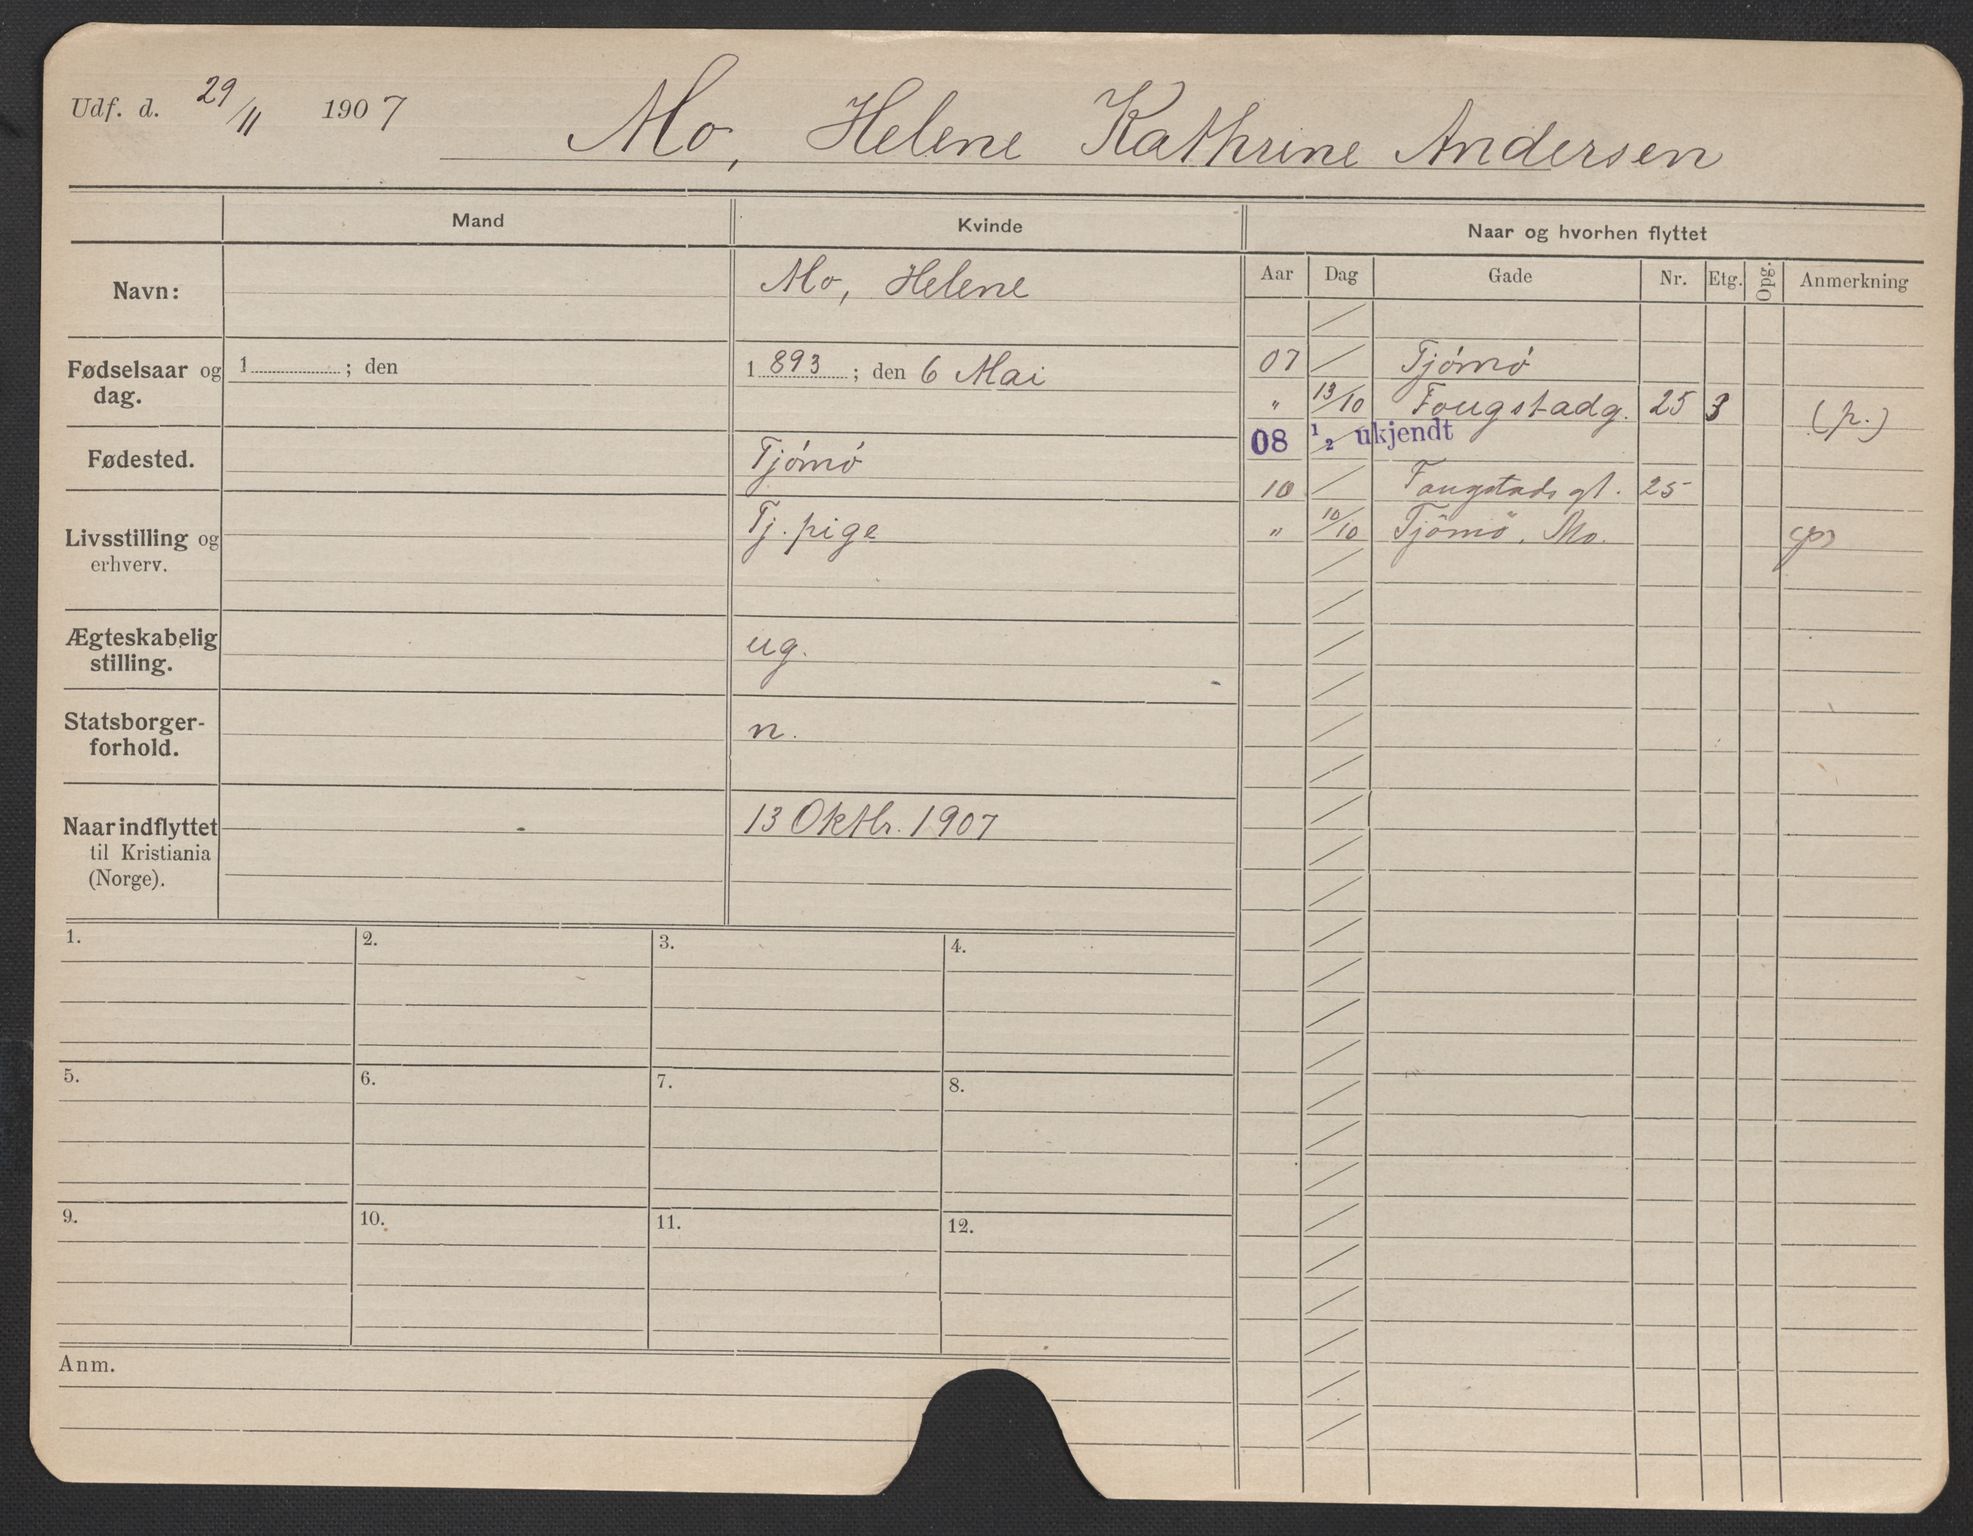 Udf. d. 29/11 1907 Mo, Helene Kathrine Andersen
Mand Kvinde Naar og hvorhen flyttet
Aar Dag Gade Nr. Etg. Opg. Anmerkning
Navn: Mo, Helene
Fødselsaar og dag. 1 ; den 1893 ; den 6 Mai
Fødested. Tjømø
Livsstilling og erhverv. Tj. pige
Ægteskabelig stilling. ug.
Statsborgerforhold. n.
Naar indflyttet til Kristiania (Norge). 13 Oktbr. 1907
07 Tjømø
" 13/10 Fougstadg. 25 3 (p.)
08 1/2 ukjendt
10 Fougstads gt. 25
" 10/10 Tjömö, Mo. (p)
1. 2. 3. 4.
5. 6. 7. 8.
9. 10. 11. 12.
Anm.